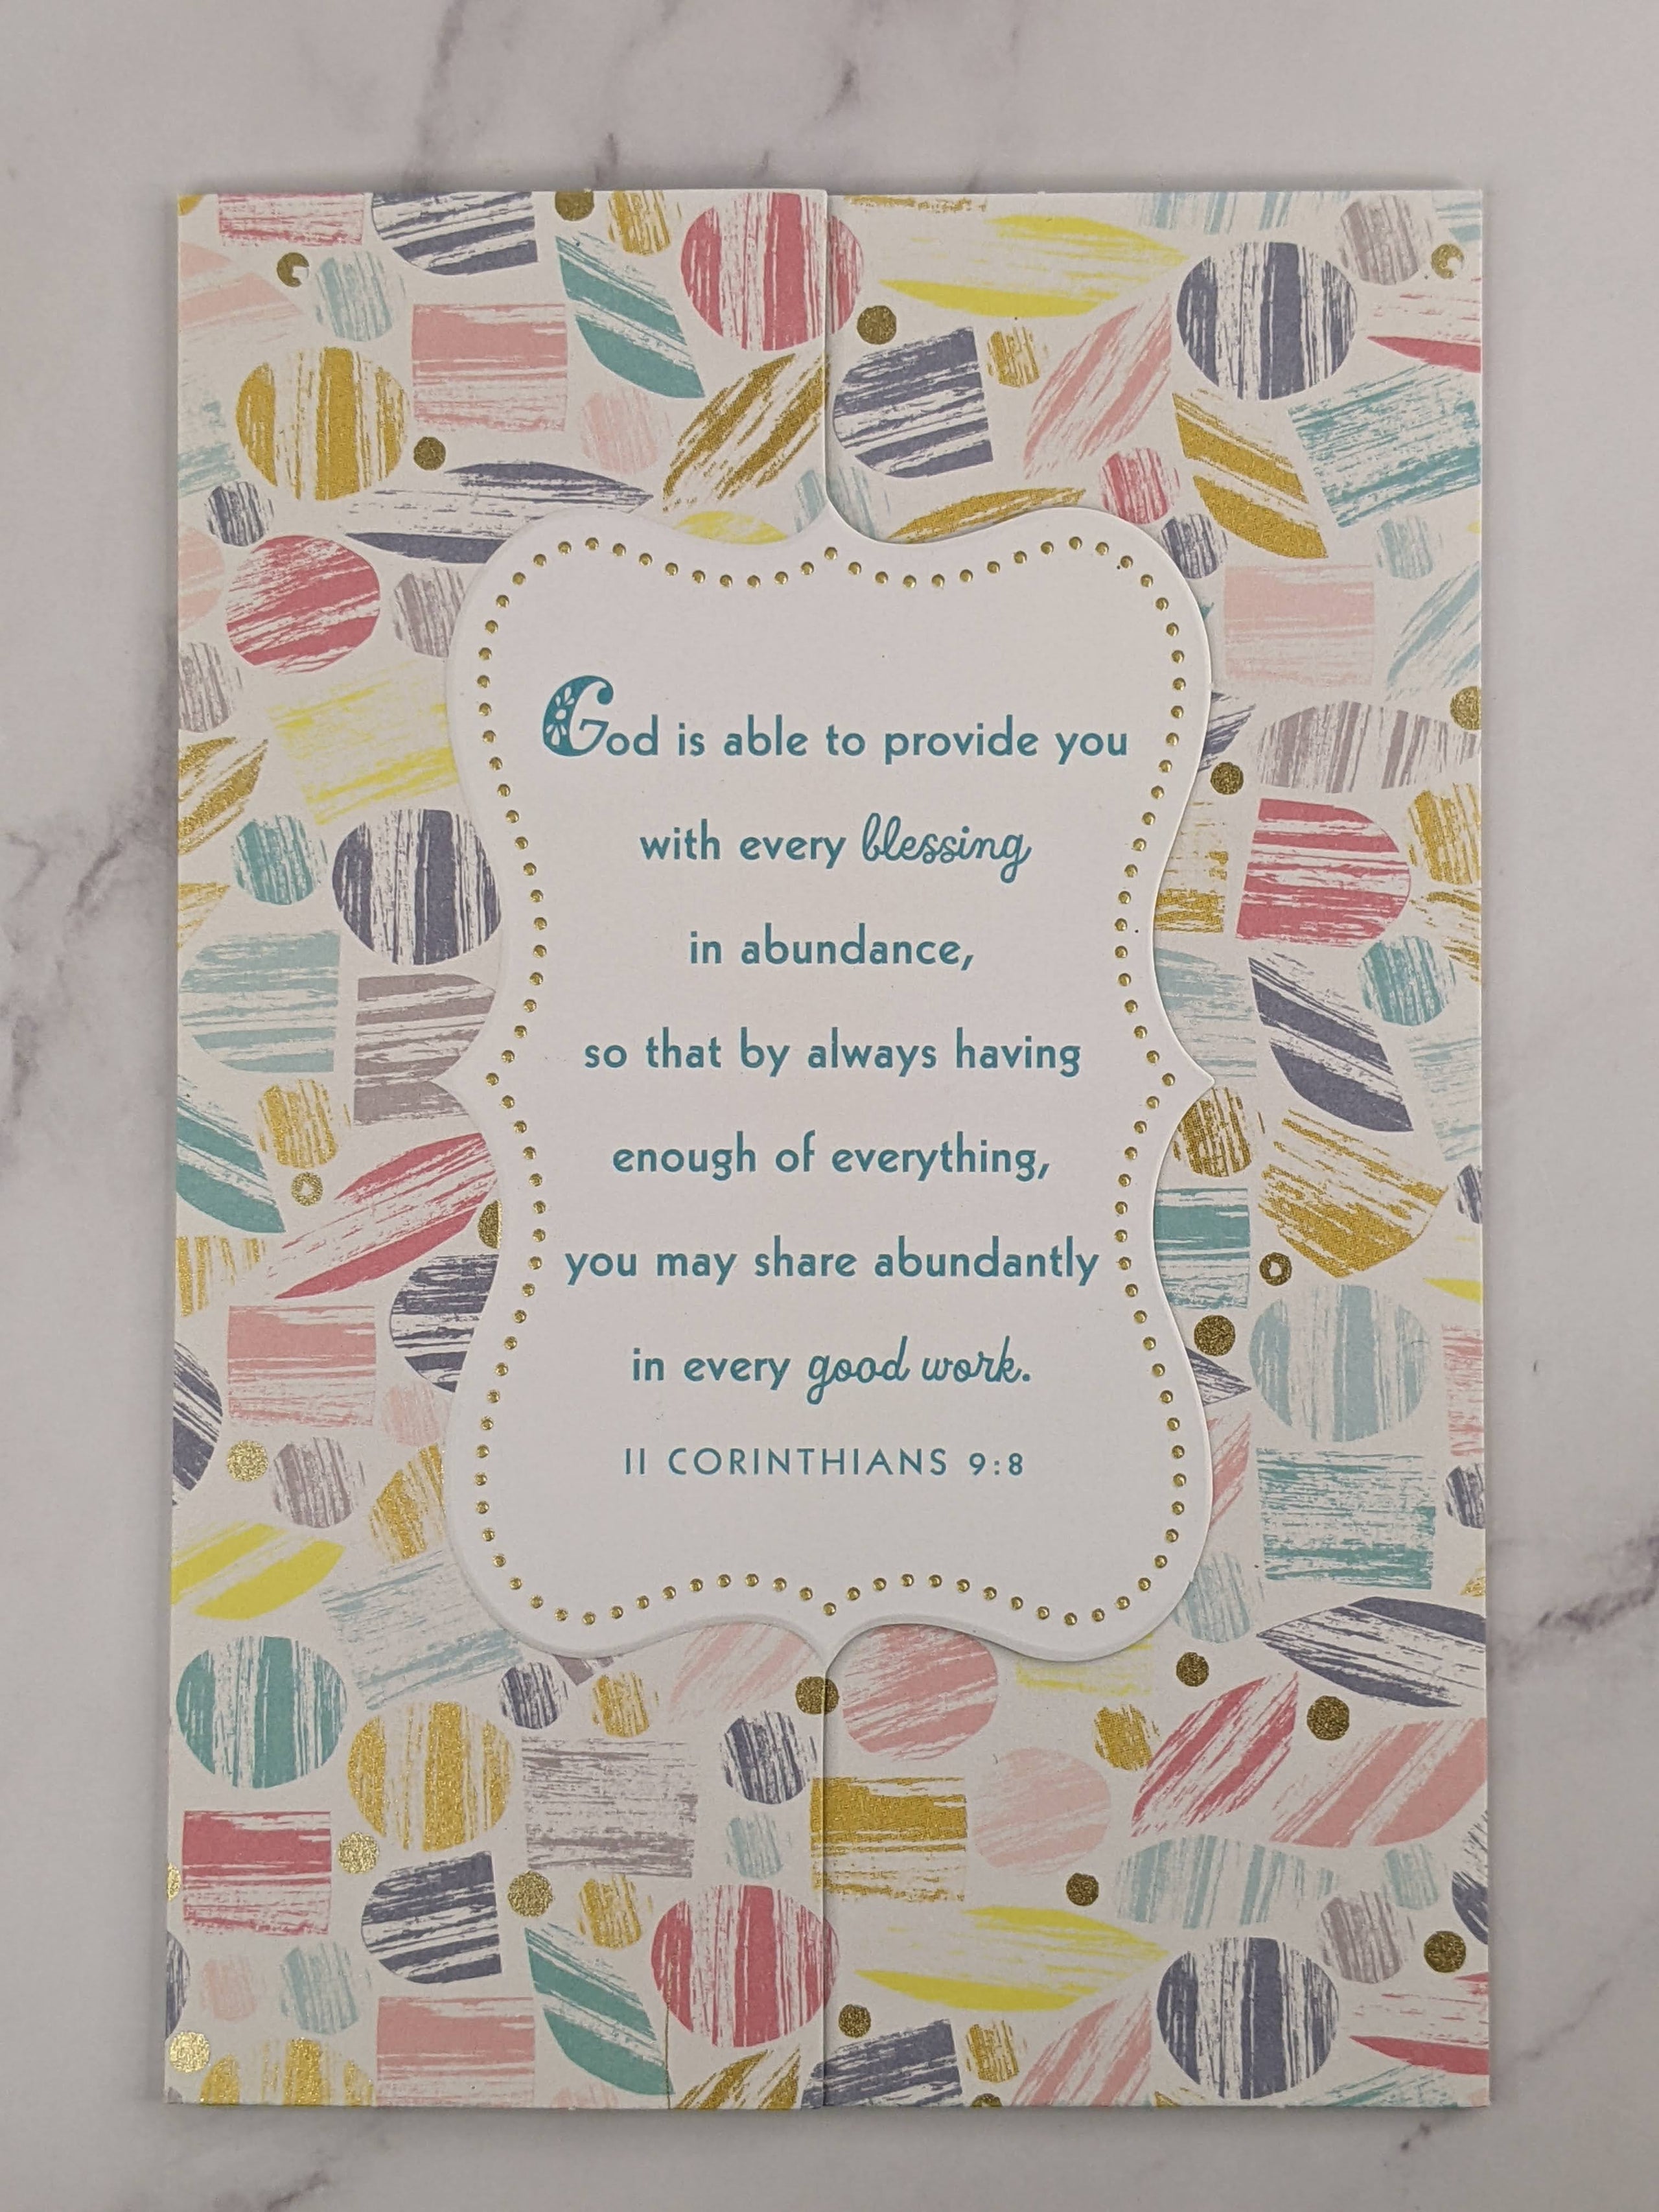 God is able to provide you
with every blessing
in abundance,
so that by always having
enough of everything,
you may share abundantly
in every good work.
II CORINTHIANS 9:8